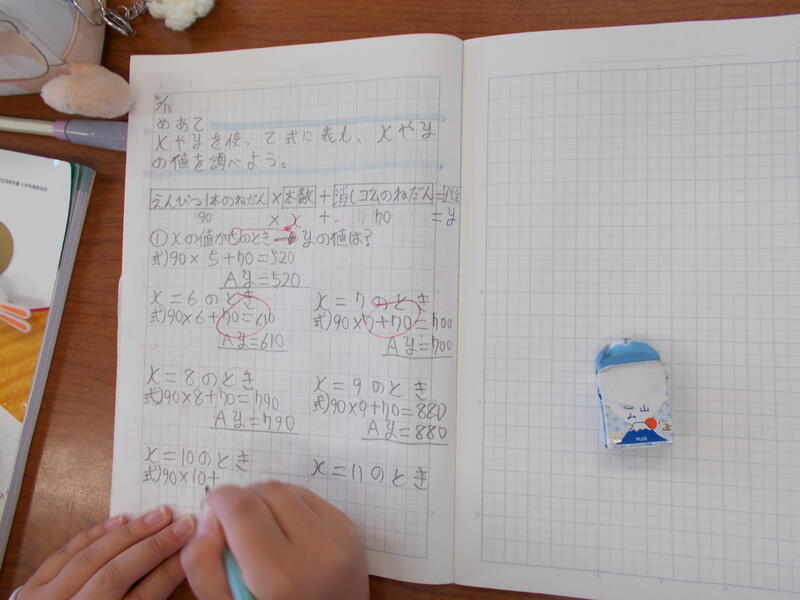 5/13
めあて
xやyを使って式に表し、xやy
の値を調べよう。
えんぴつ1本のねだん×本数+消しゴムのねだん=代金
90 × x + 70 = y
①xの値が5のとき→yの値は?
式)90×5+70=520
A y=520
x=6のとき
式)90×6+70=610
A y=610
x=7のとき
式)90×7+70=700
A y=700
x=8のとき
式)90×8+70=790
A y=790
x=9のとき
式)90×9+70=880
A y=880
x=10のとき
式)90×10+
x=11のとき
PLUS